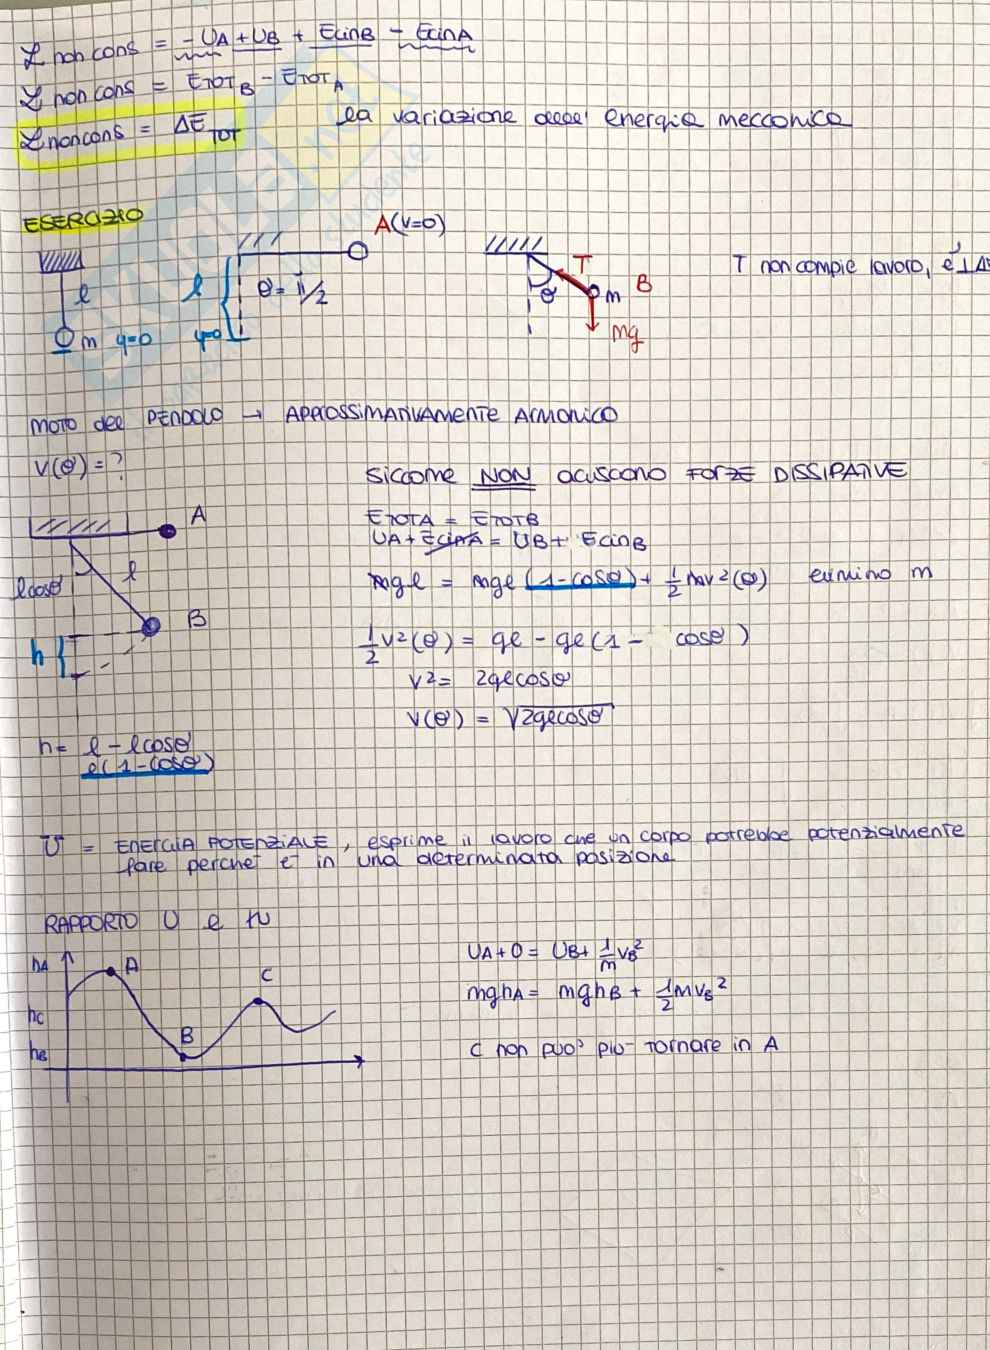 L non cons = -UA + UB + EcinB - EcinA
L non cons = ETOTB - ETOTA
L non cons = ΔETOT la variazione dell' energia meccanica
ESERCIZIO
A(v=0)
l
m y=0
l
θ = π/2
y=0
T
θ
m
B
mg
T non compie lavoro, è ⊥
MOTO del PENDOLO → APPROSSIMATIVAMENTE ARMONICO
v(θ) = ?
SICCOME NON agiscono FORZE DISSIPATIVE
A
l cosθ
l
B
h
ETOTA = ETOTB
UA + EcinA = UB + EcinB
mgl = mgl (1-cosθ) + 1/2 mv²(θ) elimino m
1/2 v²(θ) = gl - gl(1 - cosθ)
v² = 2glcosθ
v(θ) = √2glcosθ
h = l - lcosθ
l(1-cosθ)
U = ENERGIA POTENZIALE, esprime il lavoro che un corpo potrebbe potenzialmente
fare perché è in una determinata posizione
RAPPORTO U e h
hA
hC
hB
A
B
C
UA + 0 = UB + 1/m vB²
mghA = mghB + 1/2 mvB²
C non può più tornare in A